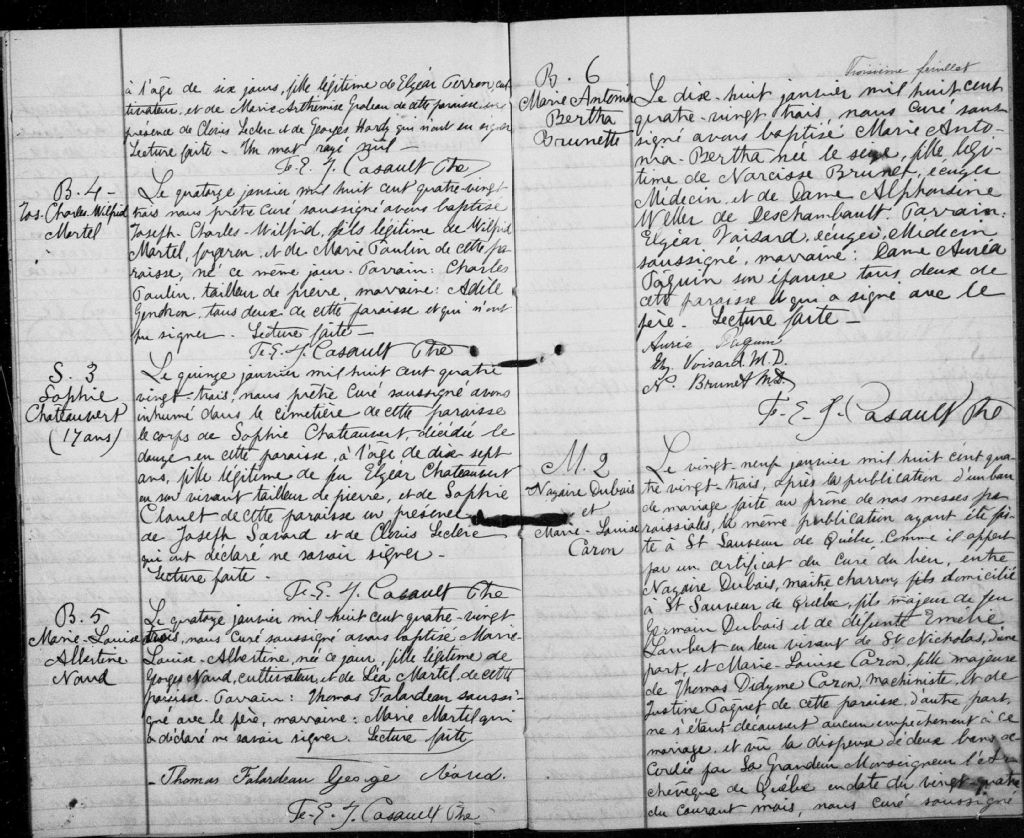 à l'âge de six jours, fille légitime de Elzéar Perron, cul
tivateur, et de Marie Arthémise Groleau de cette paroisse, en
présence de Clovis Leclerc et de Georges Hardy qui n'ont su signer
Lecture faite - Un mot rayé nul -
F.-E. J. Casault Ptre
B. 4 -
Jos. Charles-Wilfrid
Martel
Le quatorze janvier mil huit cent quatre-vingt
trois nous prêtre curé soussigné avons baptisé
Joseph-Charles-Wilfrid, fils légitime de Wilfrid
Martel, forgeron, et de Marie Paulin de cette pa
roisse, né ce même jour. Parrain: Charles
Paulin, tailleur de pierre, marraine: Adèle
Gendron, tous deux de cette paroisse et qui n'ont
pu signer. Lecture faite -
F.-E. J. Casault Ptre
S. 3
Sophie
Chateauvert
(17 ans)
Le quinze janvier mil huit cent quatre
vingt-trois, nous prêtre curé soussigné avons
inhumé dans le cimetière de cette paroisse
le corps de Sophie Chateauvert, décédée le
douze en cette paroisse, à l'âge de dix-sept
ans, fille légitime de feu Elzéar Chateauvert
en son vivant tailleur de pierre, et de Sophie
Clouet de cette paroisse en présence
de Joseph Savard et de Clovis Leclerc
qui ont déclaré ne savoir signer -
Lecture faite -
F.-E. J. Casault Ptre
B. 5
Marie-Louise
Albertine
Naud
Le quatorze janvier mil huit cent quatre-vingt
trois, nous curé soussigné avons baptisé Marie-
Louise-Albertine, née ce jour, fille légitime de
Georges Naud, cultivateur, et de Léa Martel, de cette
paroisse. Parrain: Thomas Falardeau soussi-
gné avec le père, marraine: Marie Martel qui
a déclaré ne savoir signer. Lecture faite
- Thomas Falardeau George Naud.
F.-E. J. Casault Ptre
Troisième feuillet
B. 6
Marie Antonia
Bertha
Brunette
Le dix-huit janvier mil huit cent
quatre-vingt trois, nous curé sous
signé avons baptisé Marie Anto-
nia-Bertha née le seize, fille légi-
time de Narcisse Brunet, écuyer
Médecin, et de Dame Alphonsine
Weller de Deschambault. Parrain:
Elzéar Voisard, écuyer, Médecin
soussigné, marraine: Dame Auréa
Paquin son épouse tous deux de
cette paroisse et qui a signé avec le
père. Lecture faite -
Auréa Paquin
Elz. Voisard M.D.
N. Brunet M.D.
F.-E. J. Casault Ptre
M. 2
Nazaire Dubois
et
Marie-Louise
Caron
Le vingt-neuf janvier mil huit cent qua
tre vingt-trois, après la publication d'un ban
de mariage faite au prône de nos messes pa
roissiales, la même publication ayant été fai-
te à St Sauveur de Québec comme il appert
par un certificat du curé du lieu, entre
Nazaire Dubois, maître charron, fils domicilié
à St Sauveur de Québec, fils majeur de feu
Germain Dubois et de défunte Emélie
Lambert en leur vivant de St Nicholas, d'une
part, et Marie-Louise Caron, fille majeure
de Thomas Didyme Caron, machiniste, et de
Justine Paquet de cette paroisse, d'autre part,
ne s'étant découvert aucun empêchement à ce
mariage, et vû la dispense de deux bans ac
cordée par Sa Grandeur Monseigneur l'Ar
chevêque de Québec en date du vingt-quatre
du courant mois, nous curé soussigné